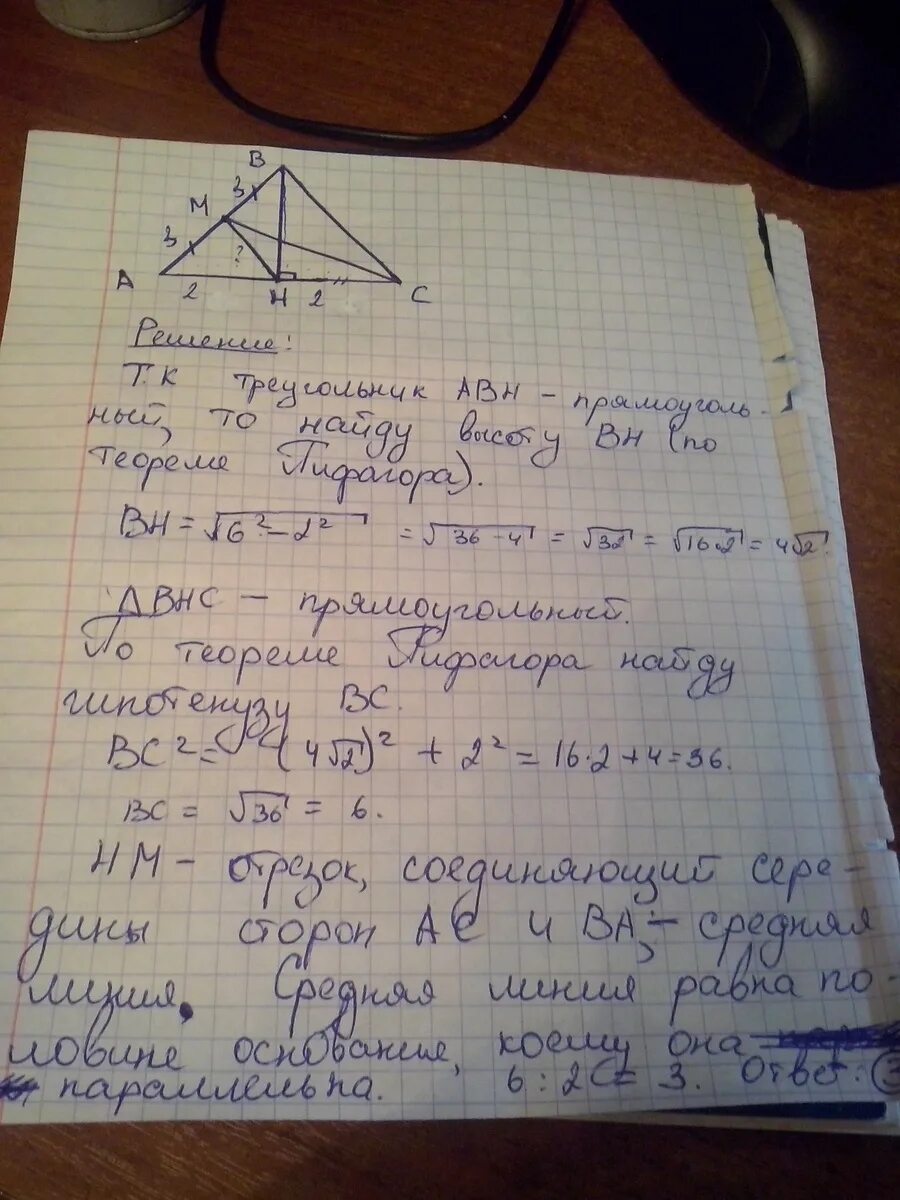 B
3
M
3
?
A
2
H
2
C
Решение:
Т.К треугольник ABH – прямоуголь-
ный, то найду высоту BH (по
теореме Пифагора).
BH = √6² – 2² = √36 – 4 = √32 = √16·2 = 4√2.
ΔBHC – прямоугольный.
По теореме Пифагора найду
гипотенузу BC.
BC² = (4√2)² + 2² = 16·2+4=36.
BC = √36 = 6.
HM – отрезок, соединяющий сере-
дины сторон AC и BA, – средняя
линия. Средняя линия равна по-
ловине основания, коему она
параллельна. 6 : 2 = 3. Ответ: 3